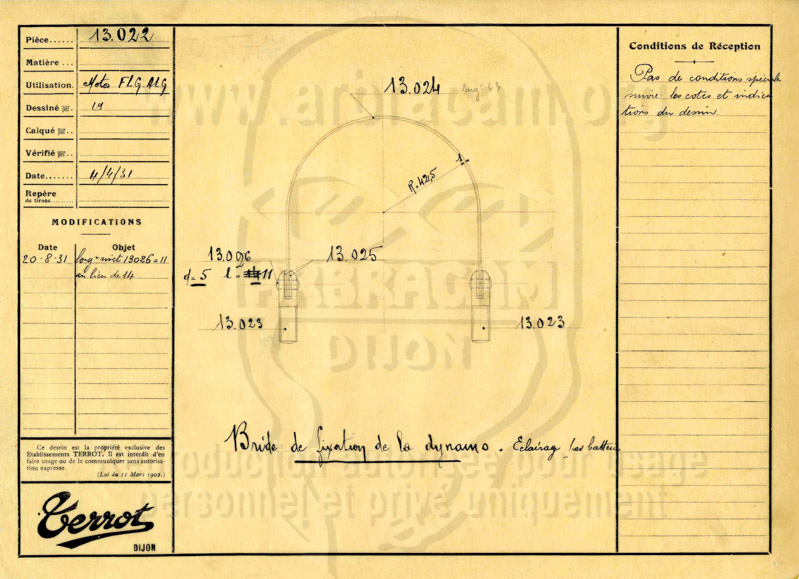 Pièce...... 13.022
Matière ...
Utilisation. Motos FLG. ALG
Dessiné par.
Calqué par..
Vérifié par..
Date....... 4/4/31
Repère
de tirage........
MODIFICATIONS
Date Objet
20-8-31 long. rivet 13026=11
au lieu de 14
Ce dessin est la propriété exclusive des
Etablissements TERROT. Il est interdit d'en
faire usage ou de le communiquer sans autorisa-
tion expresse.
(Loi du 11 Mars 1902.)
Terrot
DIJON
13.024
R. 42,5
1
13.026
13.025
d=5 l= 11
13.023
13.023
Bride de fixation de la dynamo. Eclairage par batterie
Conditions de Réception
Pas de conditions spéciales
suivre les cotes et indica
tions du dessin
www.arbracam.org
ARBRACAM
DIJON
Reproduction autorisée pour usage
personnel et privé uniquement